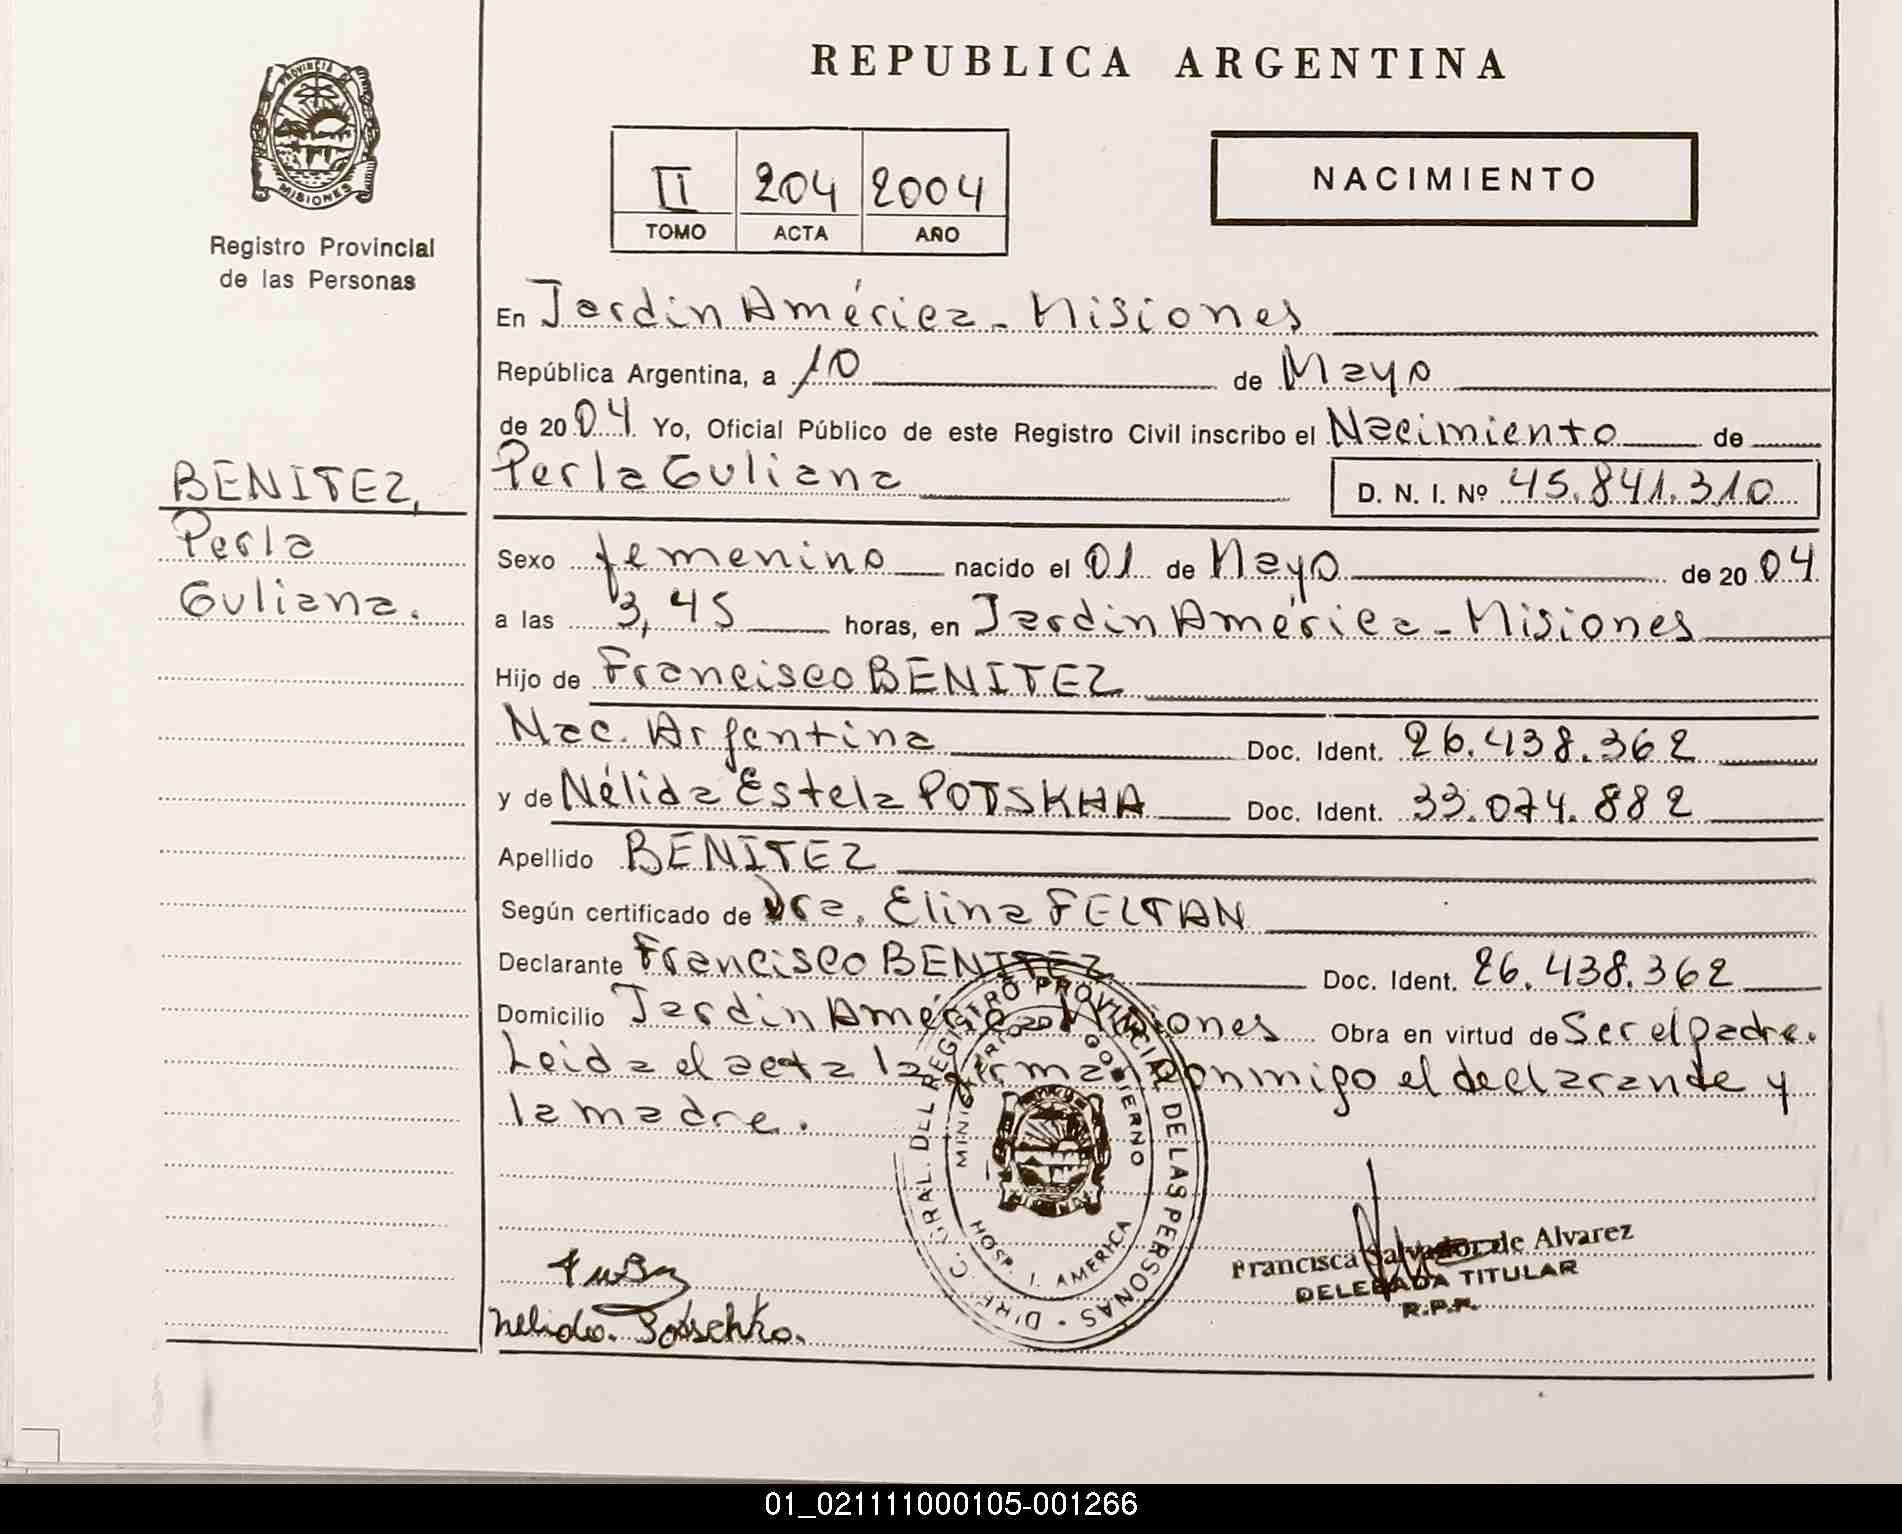 REPUBLICA ARGENTINA
PROVINCIA
MISIONES
Registro Provincial
de las Personas
II 204 2004
TOMO ACTA AÑO
NACIMIENTO
En Jardin América - Misiones
República Argentina, a 10 de Mayo
de 2004 Yo, Oficial Público de este Registro Civil inscribo el Nacimiento de
Perla Guliana
D. N. I. Nº 45.841.310
BENITEZ,
Perla
Guliana.
Sexo femenino nacido el 01 de Mayo de 2004
a las 3,45 horas, en Jardin América - Misiones
Hijo de Francisco BENITEZ
Nac. Argentina Doc. Ident. 26.438.362
y de Nélida Estela POTSKHA Doc. Ident. 33.074.882
Apellido BENITEZ
Según certificado de Dra. Elina FELTAN
Declarante Francisco BENITEZ Doc. Ident. 26.438.362
Domicilio Jardin América Misiones Obra en virtud de Ser el padre.
Leida el acta la firman conmigo el declarande y
la madre.
DIREC. GRAL. DEL REGISTRO PROVINCIAL DE LAS PERSONAS
MINISTERIO GOBIERNO
HOSP. J. AMERICA
Francisca Salvador de Alvarez
DELEGADA TITULAR
R.P.P.
Nelida Potschko.
01_021111000105-001266